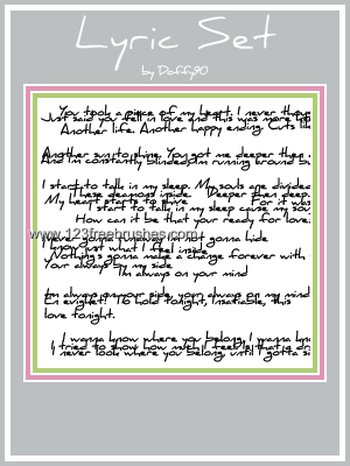 Lyric Set
by Daffy90
You took a piece of my heart. I never
Just said you fell in love and this was more
Another life. Another happy ending. Cuts
Another sun to shine. You got me deeper then
And I'm constantly blinded, I'm running around
I start to talk in my sleep. My souls are divided
These deamons inside. Deeper then deep.
My heart starts to shine For it was
I start to talk in my sleep cause my
How can it be that your ready for love.
www.123freebrushes.com
Never gonna runaway im not gonna hide
know just what I feel inside
Nothing's gonna make a change forever
Your always by my side
I'm always on your mind
Im always on your side, your always on my mind
to hold tonight, Insatiable, this
love tonight.
I wanna know where you belong, I wanna
I tried to show how much I feel
I never look where you belong, until I gotta